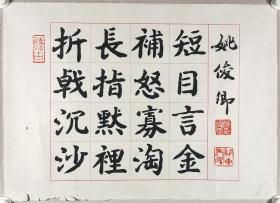 折長補短
戟指怒目
沉默寡言
沙裡淘金
姚俊卿